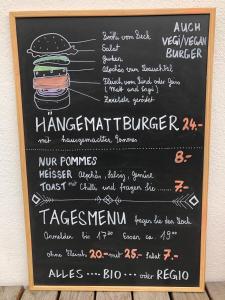 AUCH
VEGI/VEGAN
BURGER
Brötli vom Beck
Salat
Gurken
Alpchäs vom
Fleisch vom Rind oder
Zwiebele grödet
HÄNGEMATTBURGER 24.-
mit hausgemachten Pommes
NUR POMMES 8.-
HEISSER Alpchäs, Salsiz, Gemüse
TOAST mit Chille und fragen Sie ... 7.-
TAGESMENU fragen Sie den Koch
Anmelden bis 17³⁰ Essen ca. 19⁰⁰
ohne Fleisch 20.- mit 25.- Salat 7.-
ALLES .... BIO ... oder REGIO